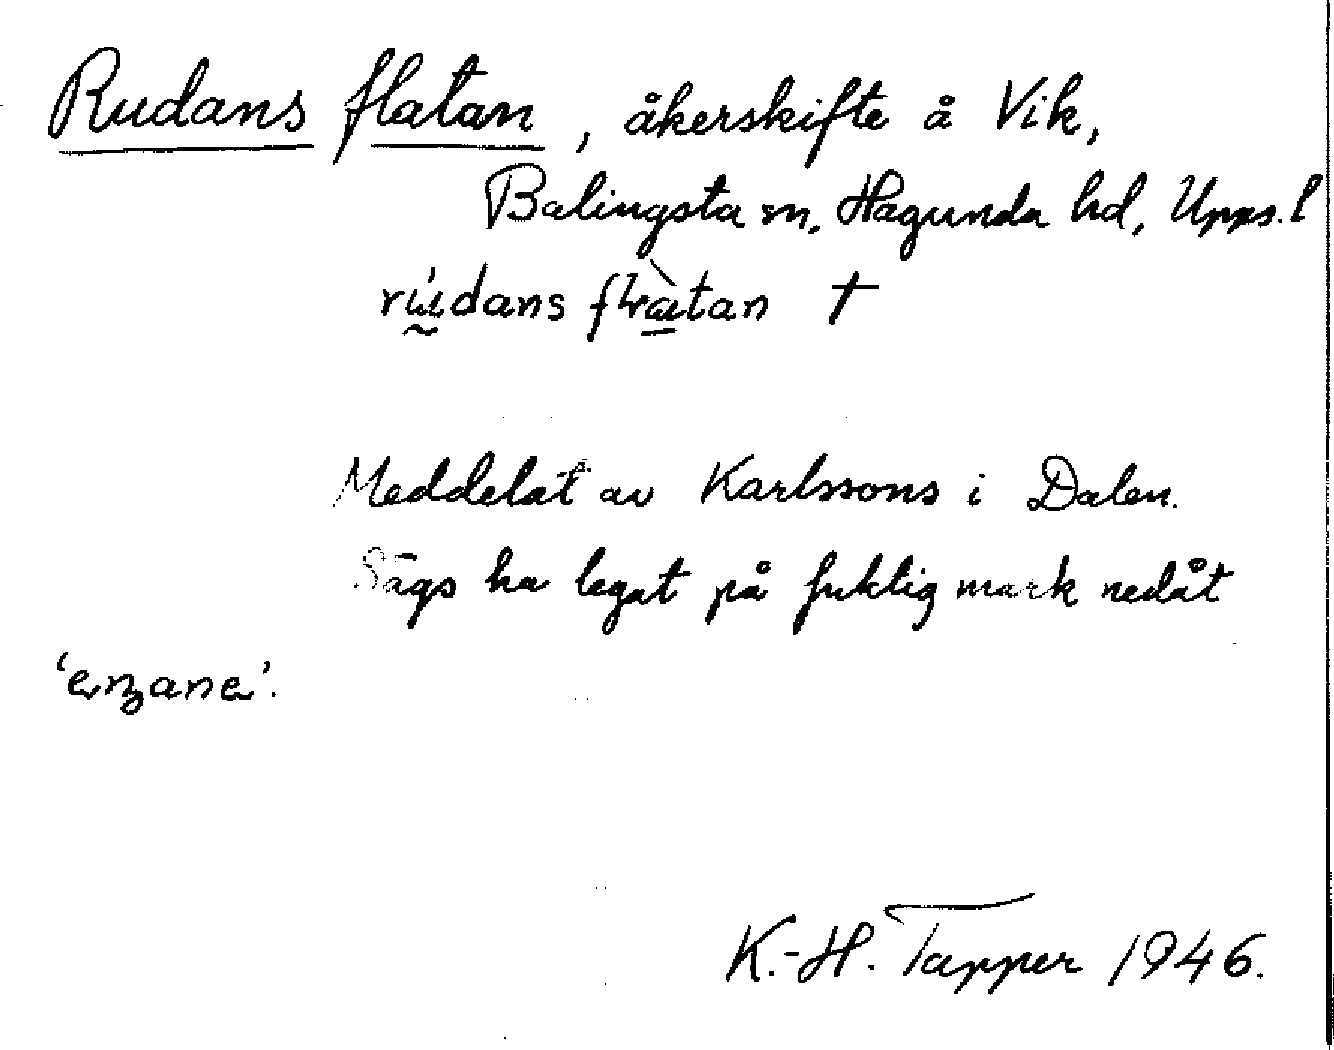 Rudans flatan, åkerskifte å Vik,
Balingsta sn, Hagunda hd, Upps. l
rúdans flàtan †
Meddelat av Karlssons i Dalen.
Sägs ha legat på fuktig mark nedåt
K.-H. Tapper 1946.